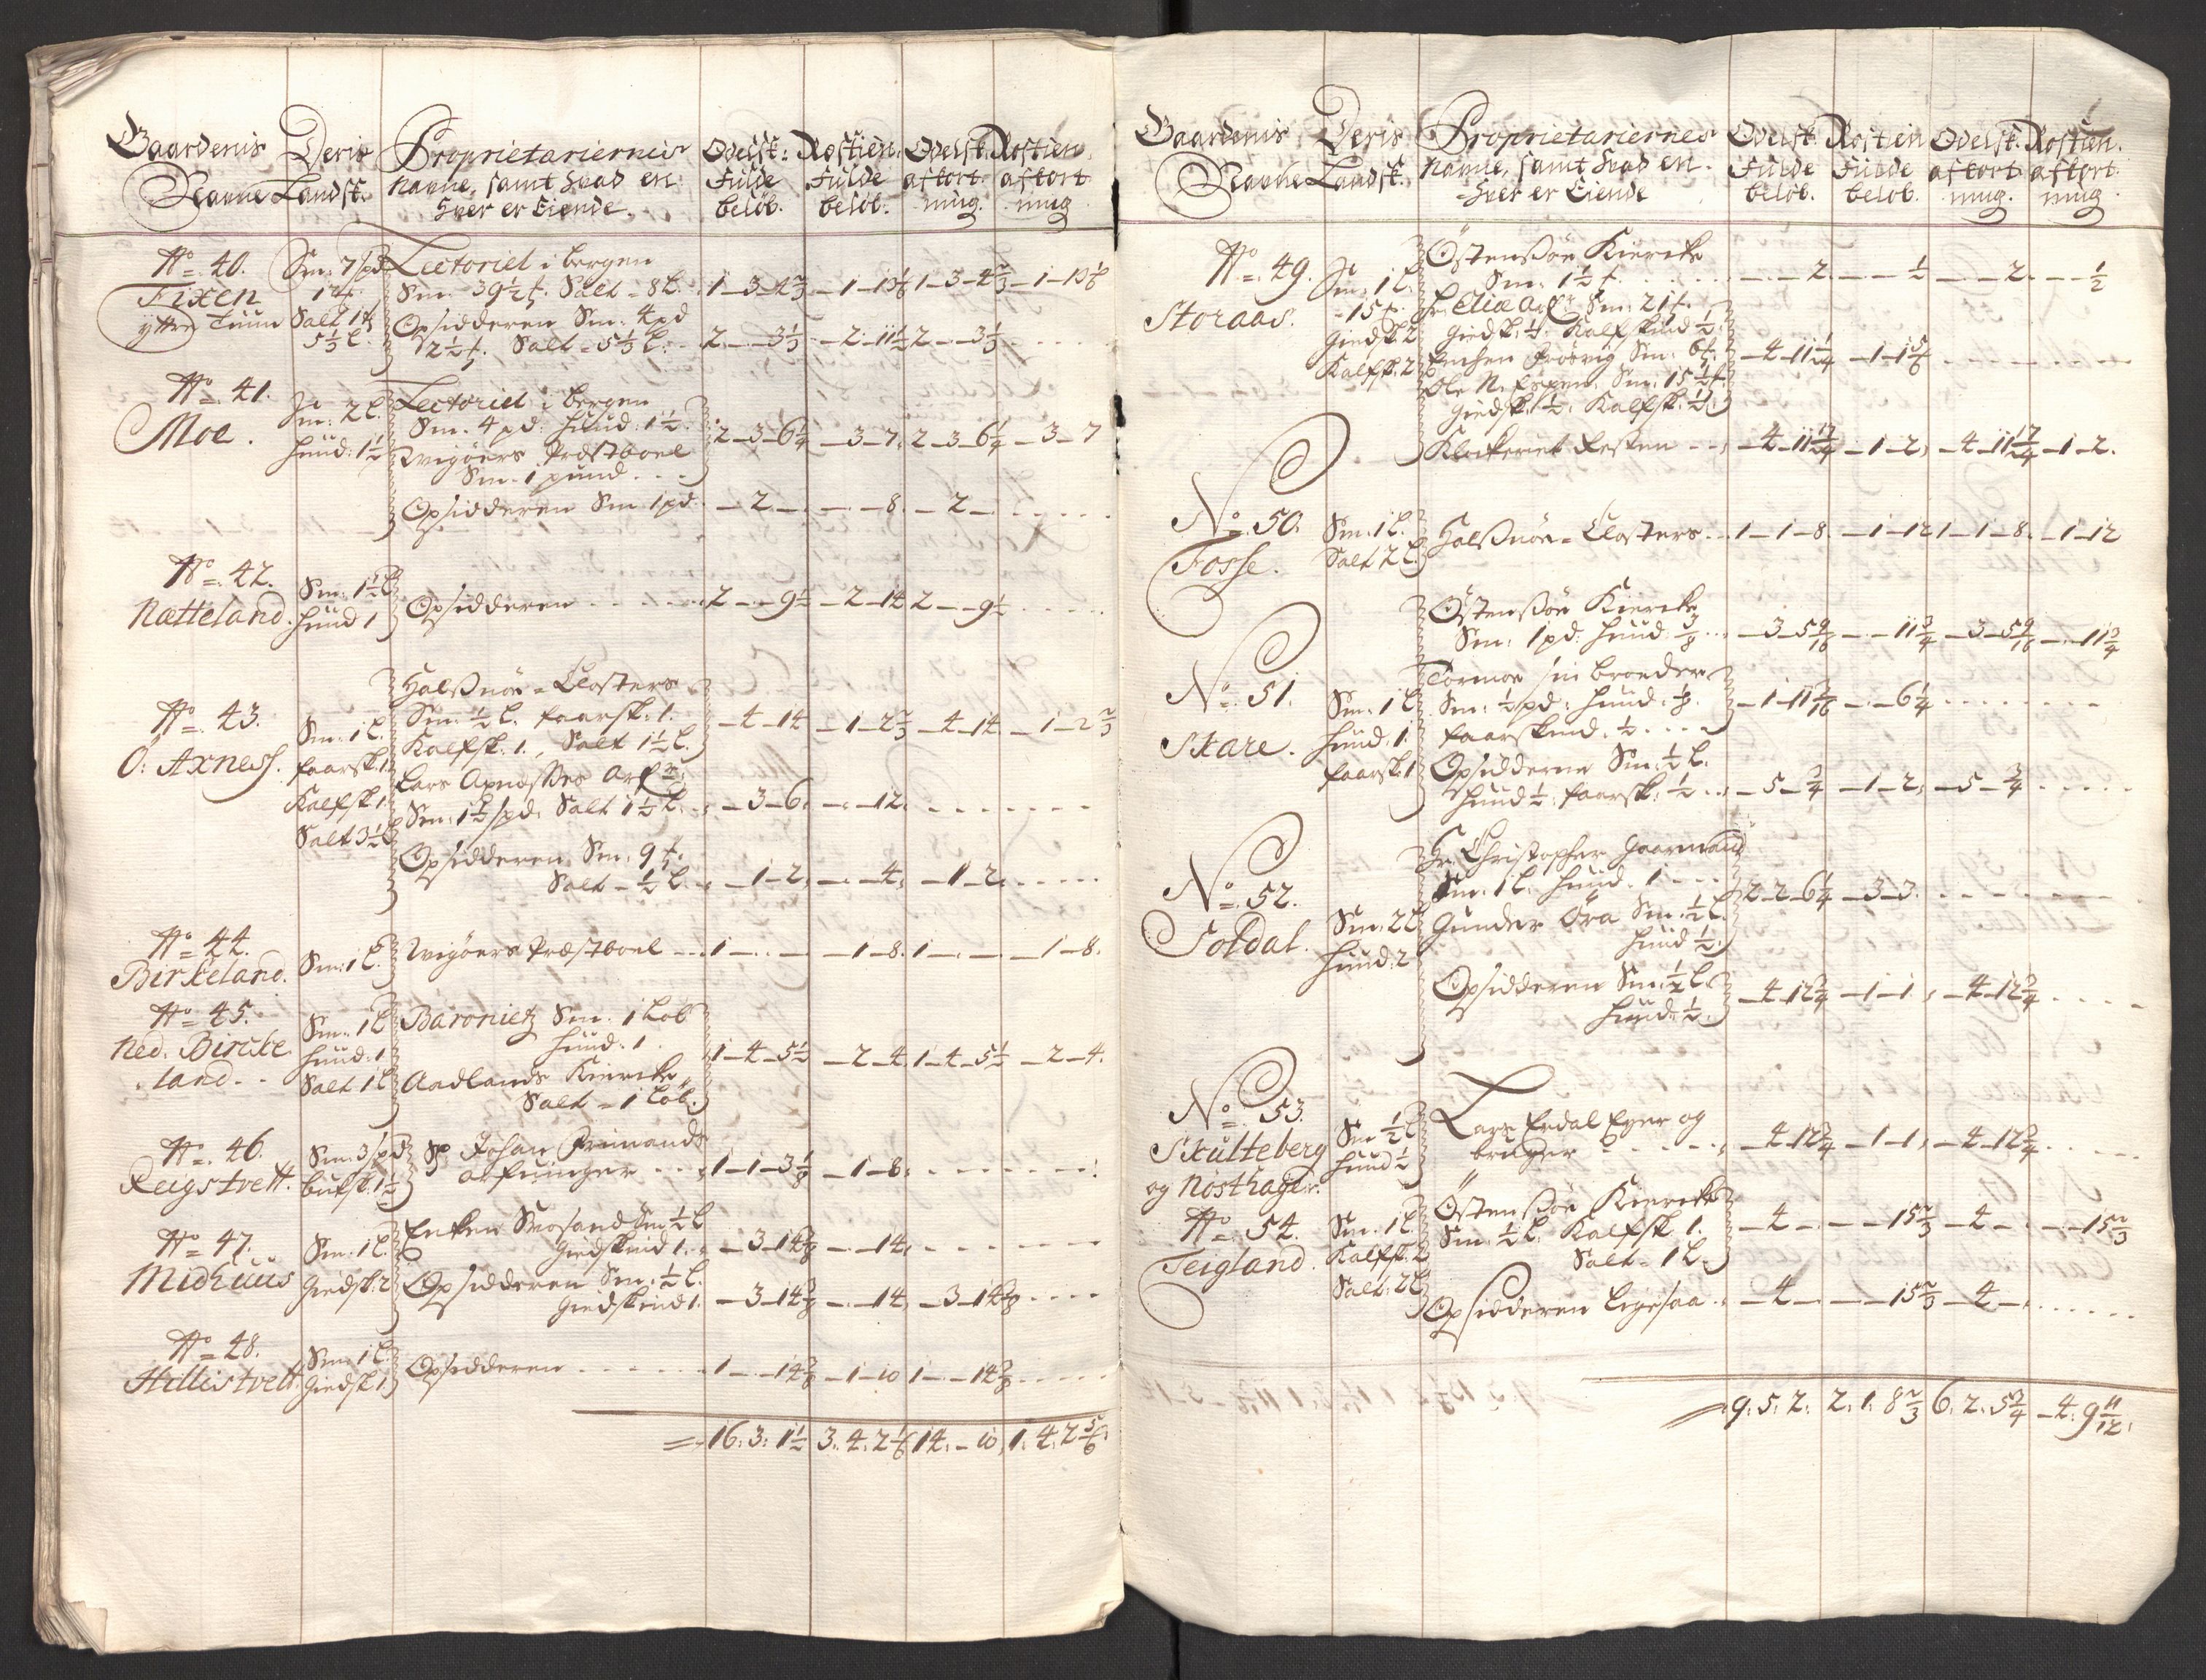 Gaardenis Navne
Deris Landsk:
Proprietariernis Navne, samt hvad en hver er Eiende.
Odelsk: Fulde beløb.
Rostien. Fulde beløb.
Odelsk. afkortning.
Rostien. afkortning
No = 40.
Fixen
ytter Tuun
Sm: 7 spd
12 f.
Salt 1 f
5 1/3 l.
Lectoriet i bergen
Sm. 39 1/2 f. Salt = 8 l. 1 - 3 - 4 2/3 - 1 - 10 1/6 1 - 3 - 4 2/3 - 1 - 10 1/6
Opsidderen Sm: 4 pd
2 1/2 f. Salt = 5 1/3 l: 2 - - 3 1/3 - 2 - 11 1/2 2 - - 3 1/3
No = 41.
Moe.
Sm: 2 l.
huud: 1 1/2
Lectoriet i bergen
Sm. 4 pd: huud: 1 1/2. 2 - 3 - 6 1/4 - 3 - 7. 2 - 3 - 6 1/4 - 3 - 7
Wigøers Præstboel
Sm. 1 pund
Opsidderen Sm 1 pd - 2 - - - 8. - 2 -
No = 42.
Nætteland.
Sm: 1 1/2 l
huud 1
Opsidderen 2 - - 9 1/2 - 2 - 14 2 - - 9 1/2
No = 43.
O: Axness.
Sm: 1 l.
faarsk: 1.
Kalfsk 1
Salt 3 1/2 l
Halsnøe = Closters
Sm: 1/2 l. faarsk: 1.
Kalfsk. 1., Salt 1 1/2 l. - 4 - 14 - 1 - 2 2/3 - 4 - 14. - 1 - 2 2/3
Lars Apnæsses Arf:
Sm: 1 1/2 spd. Salt 1 1/2 l. - 3 - 6. - - 12.
Opsidderen Sm: 9 f.
Salt - 1/2 l. - 1 - 2, - - 4, - 1 - 2.
No = 44.
Birkeland.
Sm: 1 l.
Wigøers Præstboel 1 - - - 1 - 8. 1 - - - 1 - 8.
No = 45.
Ned. Bircke
land
Sm: 1 l
huud: 1
Salt 1 l
Baroniet Sm. 1 Løb
huud. 1. 1 - 4 - 5 1/2 - 2 - 4. 1 - 4 - 5 1/2 - 2 - 4.
Aadlands Kiercke
Salt = 1 Løb.
No = 46.
Reigstvett.
Sm: 3 spd
buksk: 1 1/2
Sl Johan Frimands
arfuinger 1 - 1 - 3 1/8 - 1 - 8.
No = 47.
Midhuus
Sm: 1 l.
Giedsk: 2
Enken Mosand Sm 1/2 l
Giedskind 1. - 3 - 14 3/8 - - 14.
Opsidderen Sm: 1/2 l.
Giedskind 1. - 3 - 14 3/8 - - 14. - 3 - 14 3/8
No = 48.
Hillistvett
Sm: 1 l.
Giedsk 1
Opsidderen 1 - - 14 3/8 - 1 - 10 1 - - 14 3/8
16: 3: 1 1/2 3. 4. 2 1/6 14. - 10, 1. 4. 2 5/6.
Gaardenis Navne
Deris Landsk.
Proprietariernes Navne, samt hvad en hver er Eiende
Odelsk. Fulde beløb.
Rostien Fulde beløb.
Odelsk. afkortning.
Rostien. afkortning
No = 49.
Storaas.
Sm: 1 l.
- 15 f.
Giedsk 2
Kalfsk. 2
Østensøe Kiercke
Sm: 1 1/2 f. - - 2. - - 1/2 - - 2. - - 1/2
Hr. Eliæ Arf: Sm: 21 f.
Giedsk: 1/2. Kalfskind 1/2.
Enchen Frøsvig Sm: 6 f. - 4 - 11 1/4 - 1 - 1 5/6
Ole N. Espen. Sm: 15 1/2 f.
Giedsk. 1 1/2. Kalfsk. 1/2.
Klockeriet Resten - 4 - 11 17/24 - 1 - 2, - 4 - 11 17/24 - 1 - 2.
No = 50.
Fosse.
Sm: 1 l.
Salt 2 l.
Halsnøe = Closters 1 - 1 - 8. - 1 - 12 1 - 1 - 8. - 1 - 12
No = 51.
Skare.
Sm: 1 l
huud: 1.
faarsk: 1
Østensøe Kiercke
Sm: 1 pd: huud: 3/8 - 3 - 5 9/16 - - 11 3/4 - 3 - 5 9/16 - - 11 3/4
Tormoe sin broeder
Sm: 1/2 pd: huud: 1/8. - 1 - 11 3/16 - - 6 1/4
faarskind. 1/2.
Opsidderne Sm: 1/2 l.
huud 1/2 faarsk: 1/2 - 5 - 3/4 - 1 - 2, - 5 - 3/4
No = 52.
Soldal.
Sm: 2 l
huud: 2
Hr. Christopher Gaarmand
Sm. 1 l. huud. 1 2 - 2 - 6 1/4 - 3 - 3.
Gunder Øra Sm: 1/2 l.
huud 1/2.
Opsidderen Sm: 1/2 l.
huud: 1/2. - 4 - 12 3/4 - 1 - 1, - 4 - 12 3/4
No = 53.
Skulteberg
og Nosthage.
Sm 1/2 l
huud 1/2
Lars Erdal Eger og
bruger - 4 - 12 3/4 - 1 - 1, - 4 - 12 3/4
No = 54.
Teigland.
Sm: 1 l.
Kalfsk: 2
Salt: 2 l
Østensøe Kiercke
Sm: 1/2 l. Kalfsk 1. - 4 - - - 15 2/3 - 4 - - - 15 2/3
Salt - 1 l.
Opsidderen ligesaa - 4 - - - 15 2/3 - 4 -
9: 5: 2. 2. 1. 8 2/3 6. 2. 5 3/4 - 4. 9 11/12.